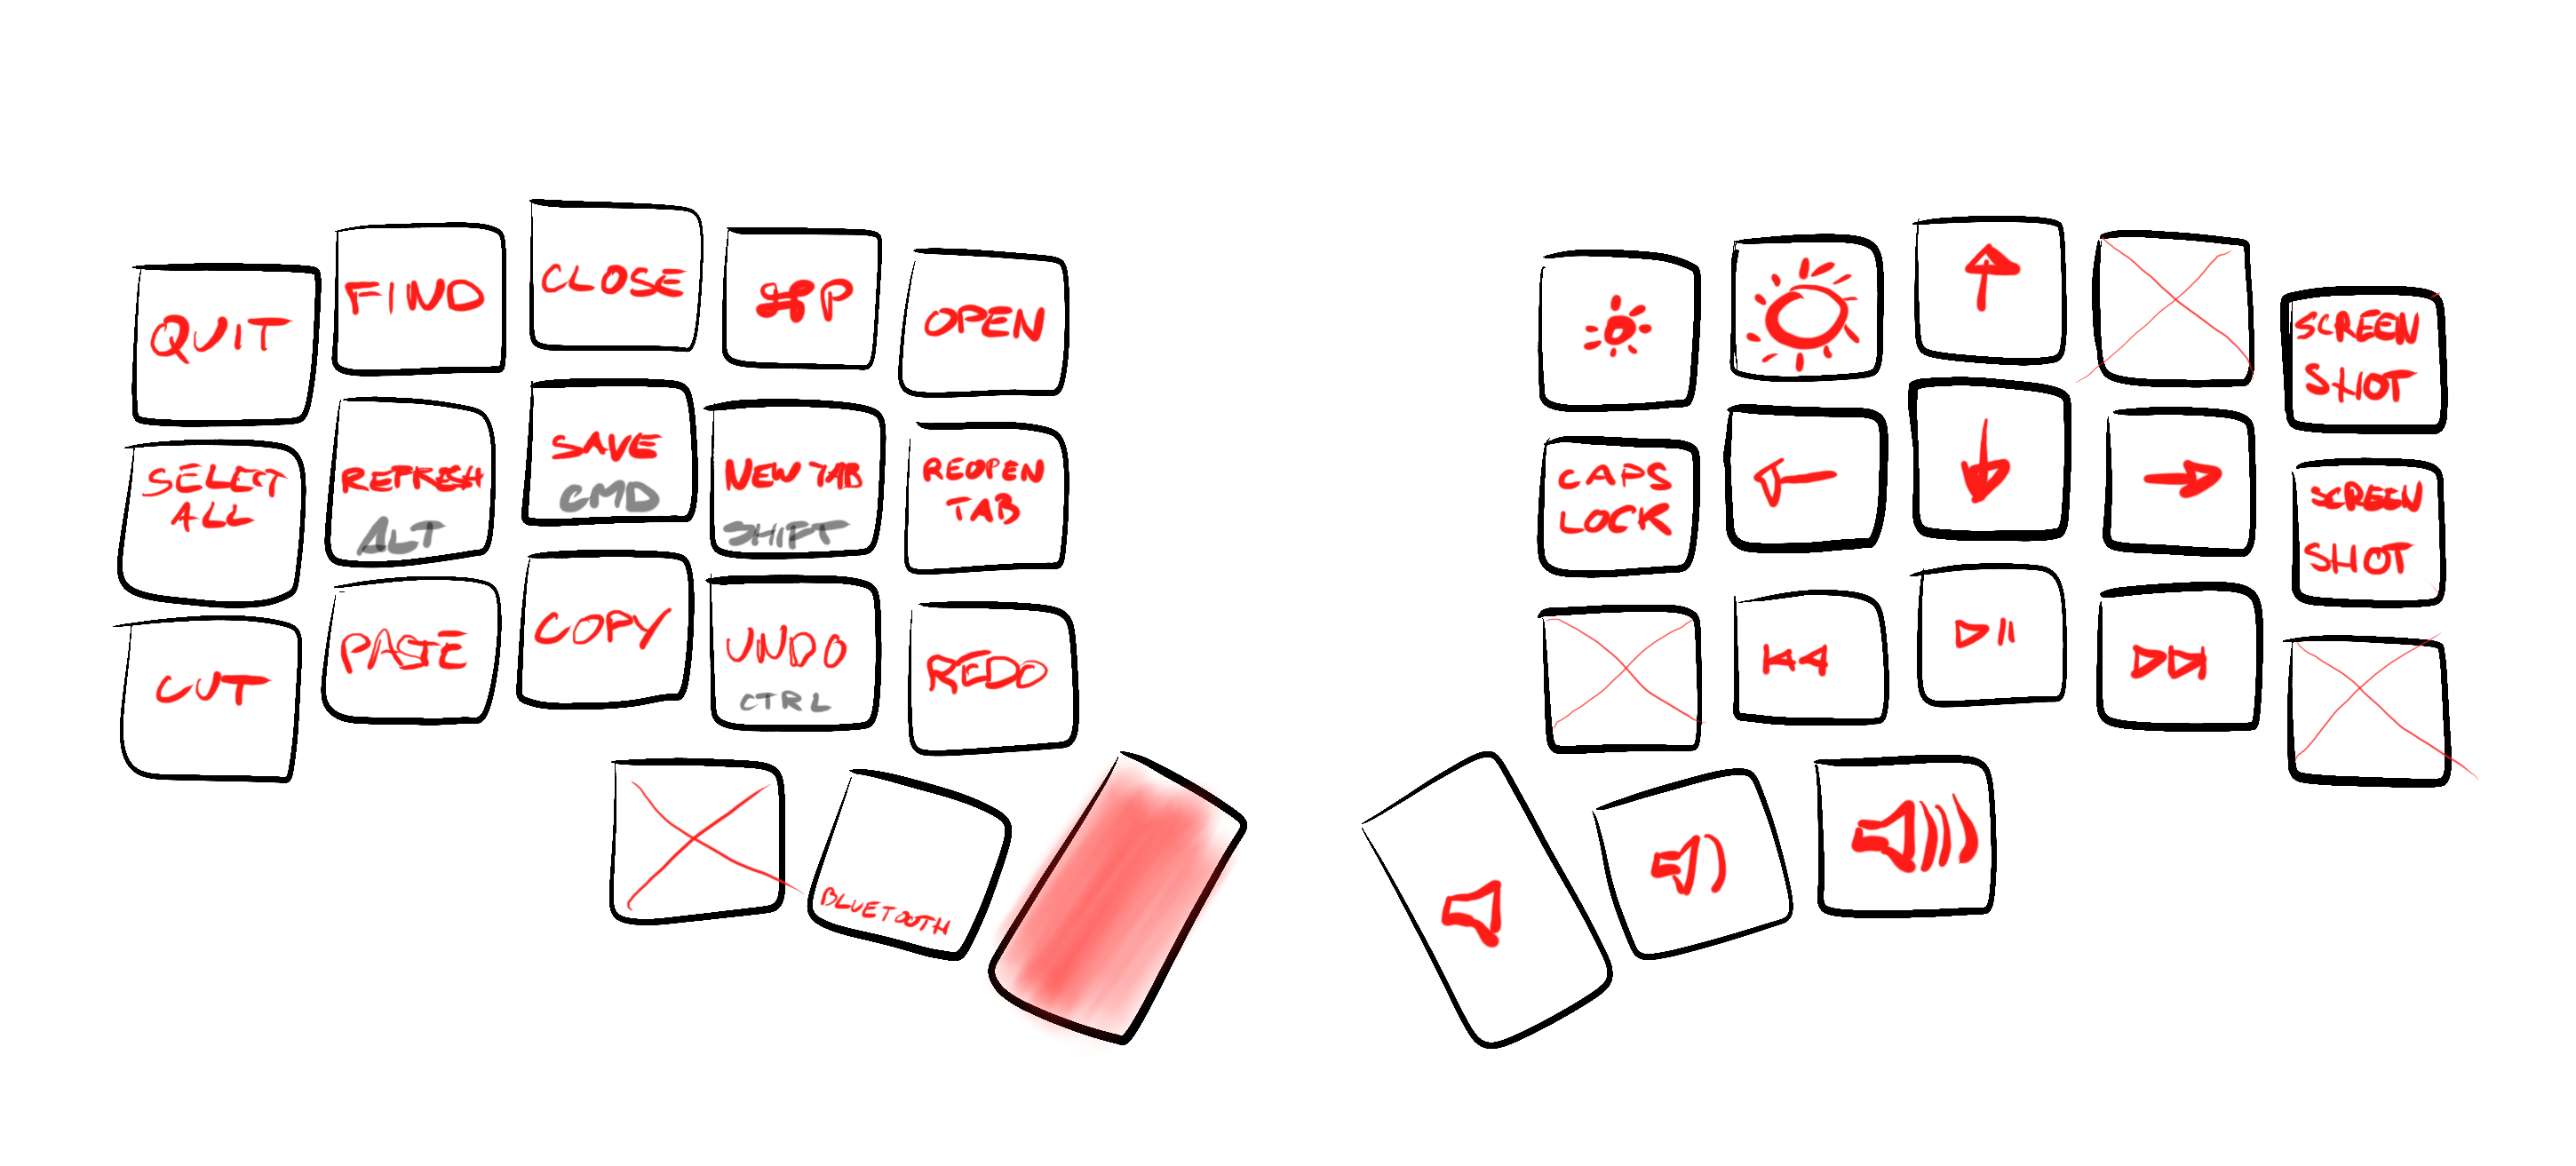 QUIT
FIND
CLOSE
⌘P
OPEN
SELECT
ALL
REFRESH
ALT
SAVE
CMD
NEW TAB
SHIFT
REOPEN
TAB
CUT
PASTE
COPY
UNDO
CTRL
REDO
BLUETOOTH
SCREEN
SHOT
CAPS
LOCK
SCREEN
SHOT